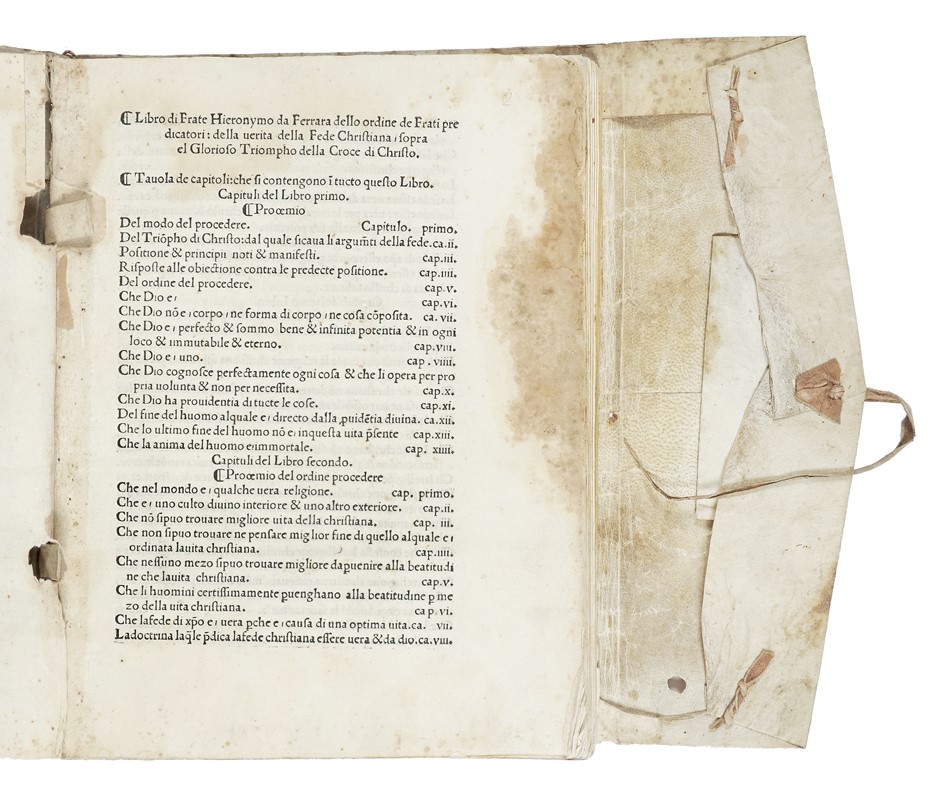 ⁋ Libro di Frate Hieronymo da Ferrara dello ordine de Frati pre
dicatori: della uerita della Fede Chriſtiana/ſopra
el Glorioſo Triompho della Croce di Chriſto.
⁋ Tauola de capitoli:che ſi contengono ī tucto queſto Libro.
Capituli del Libro primo.
⁋Proœmio
Del modo del procedere. Capitulo. primo.
Del Triōpho di Chriſto:dal quale ſicaua li argum̄ti della fede.ca.ii.
Poſitione & principii noti & manifeſti. cap.iii.
Riſpoſte alle obiectione contra le predecte poſitione. cap.iiii.
Del ordine del procedere. cap.v.
Che Dio e/ cap.vi.
Che Dio nō e/corpo/ne forma di corpo/ne coſa cōpoſita. ca. vii.
Che Dio e/ perfecto & ſommo bene & infinita potentia & in ogni
loco & immutabile & eterno. cap.viii.
Che Dio e/ uno. cap . viiii.
Che Dio cognoſce perfectamente ogni coſa & che li opera per pro
pria uolunta & non per neceſſita. cap.x.
Che Dio ha prouidentia di tucte le coſe. cap.xi.
Del fine del huomo alquale e/ directo dalla ꝓuidētia diuina. ca.xii.
Che lo ultimo fine del huomo nō e/ inqueſta uita p̄ſente cap.xiii.
Che la anima del huomo e/immortale. cap. xiiii.
Capituli del Libro ſecondo.
⁋Proœmio del ordine procedere
Che nel mondo e/ qualche uera religione. cap. primo.
Che e/ uno culto diuino interiore & uno altro exteriore. cap.ii.
Che nō ſipuo trouare migliore uita della chriſtiana. cap. iii.
Che non ſipuo trouare ne penſare miglior fine di quello alquale e/
ordinata lauita chriſtiana. cap.iiii.
Che neſſuno mezo ſipuo trouare migliore dapuenire alla beatitudi
ne che lauita chriſtiana. cap.v.
Che li huomini certiſſimamente puenghano alla beatitudine p me
zo della uita chriſtiana. cap.vi.
Che lafede di xp̄o e/ uera pche e/ cauſa di una optima uita.ca. vii.
Ladoctrina laq̄le p̄dica lafede chriſtiana eſſere uera &da dio.ca.viii.